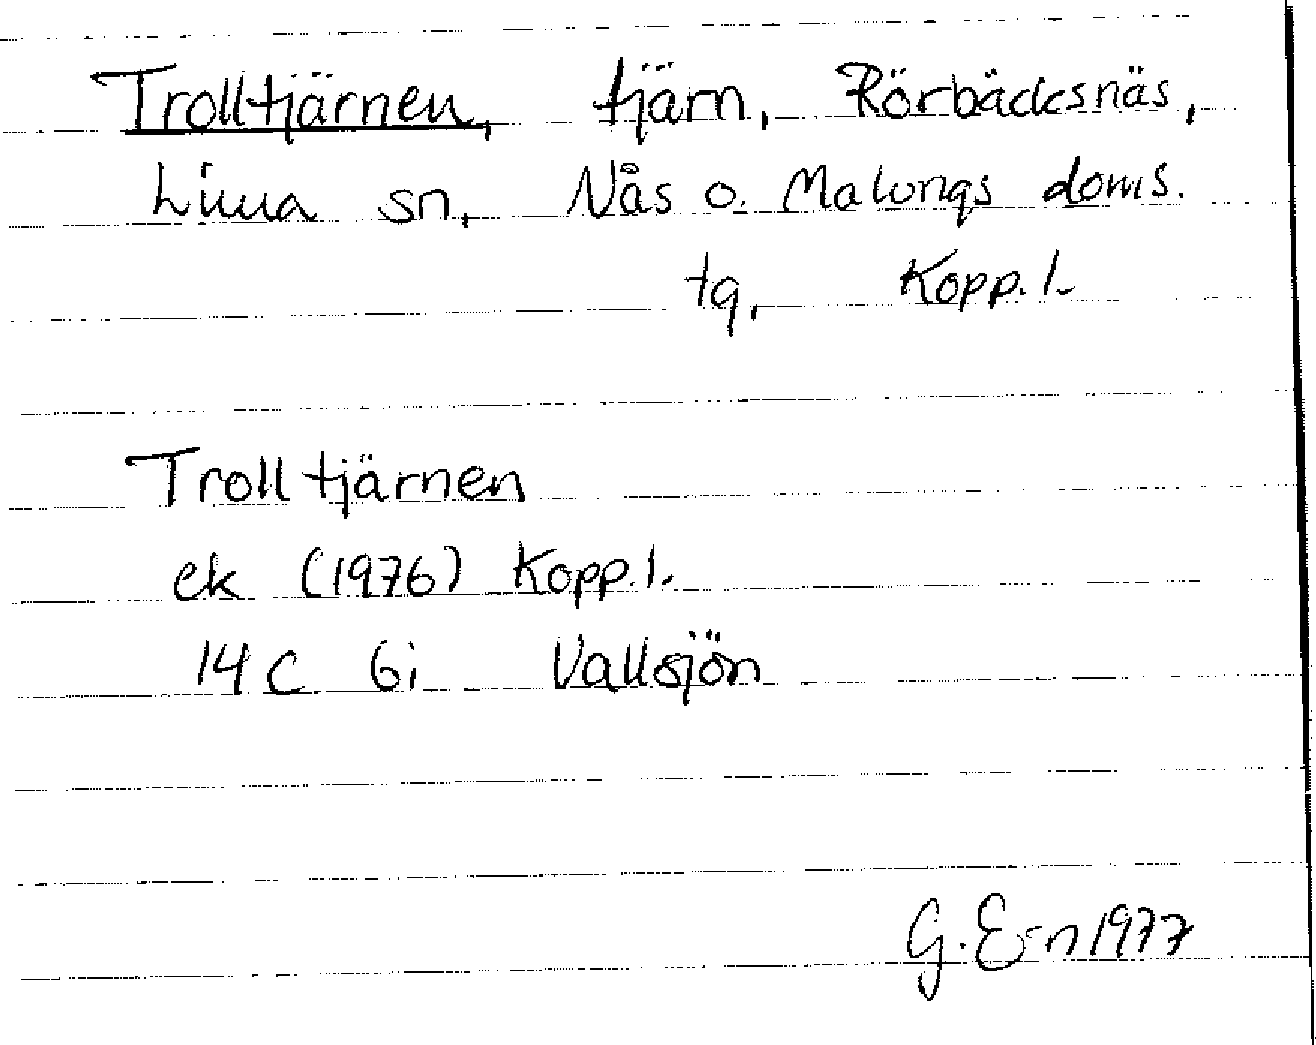 Trolltjärnen, tjärn, Rörbäcksnäs,
Lima sn, Nås o. Malungs doms.
tg, Kopp. l.
Trolltjärnen
ek (1976) Kopp. l.
14 C 6i Vallsjön
G. E-n 1977